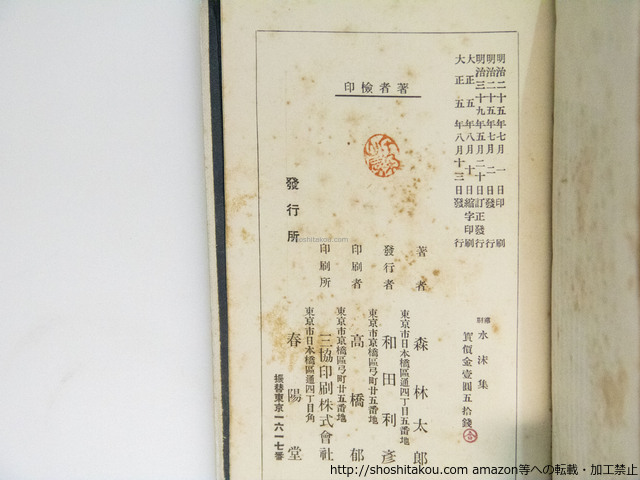 明治二十五年七月一日印刷
明治二十五年七月二日發行
明治三十九年五月二十日訂正發行
大正五年八月十日縮字印刷
大正五年八月十三日發行
著者檢印
縮刷 水沫集
實價金壹圓五拾錢
著者 森林太郎
東京市日本橋區通四丁目五番地
發行者 和田利彥
東京市京橋區弓町廿五番地
印刷者 高橋郁
東京市京橋區弓町廿五番地
印刷所 三協印刷株式會社
東京市日本橋區通四丁目角
發行所 春陽堂
振替東京一六一七番
shoshitakou.com
http://shoshitakou.com amazon等への転載・加工禁止